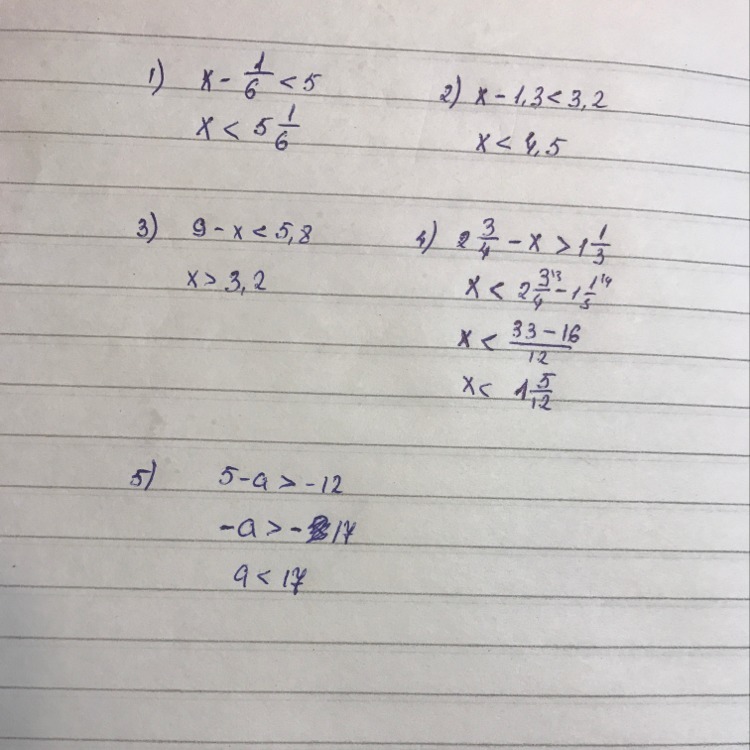 1) x - 1/6 < 5
x < 5 1/6
2) x - 1,3 < 3,2
x < 4,5
3) 9 - x < 5,8
x > 3,2
4) 2 3/4 - x > 1 1/3
x < 2 3/4 - 1 1/3
x < 33-16/12
x < 1 5/12
5) 5 - a > -12
-a > - 17
a < 17